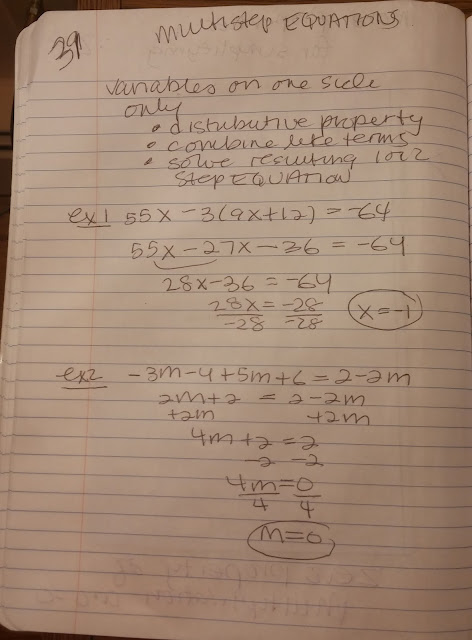 39
multistep EQUATIONS
variables on one side
only
• distributive property
• combine like terms
• solve resulting 1 or 2
step EQUATION
ex1 55x - 3(9x+12) = -64
55x - 27x - 36 = -64
28x - 36 = -64
28x = -28
-28 -28
x = -1
ex2 -3m - 4 + 5m + 6 = 2 - 2m
2m + 2 = 2 - 2m
+2m +2m
4m + 2 = 2
-2 -2
4m = 0
4 4
m = 0